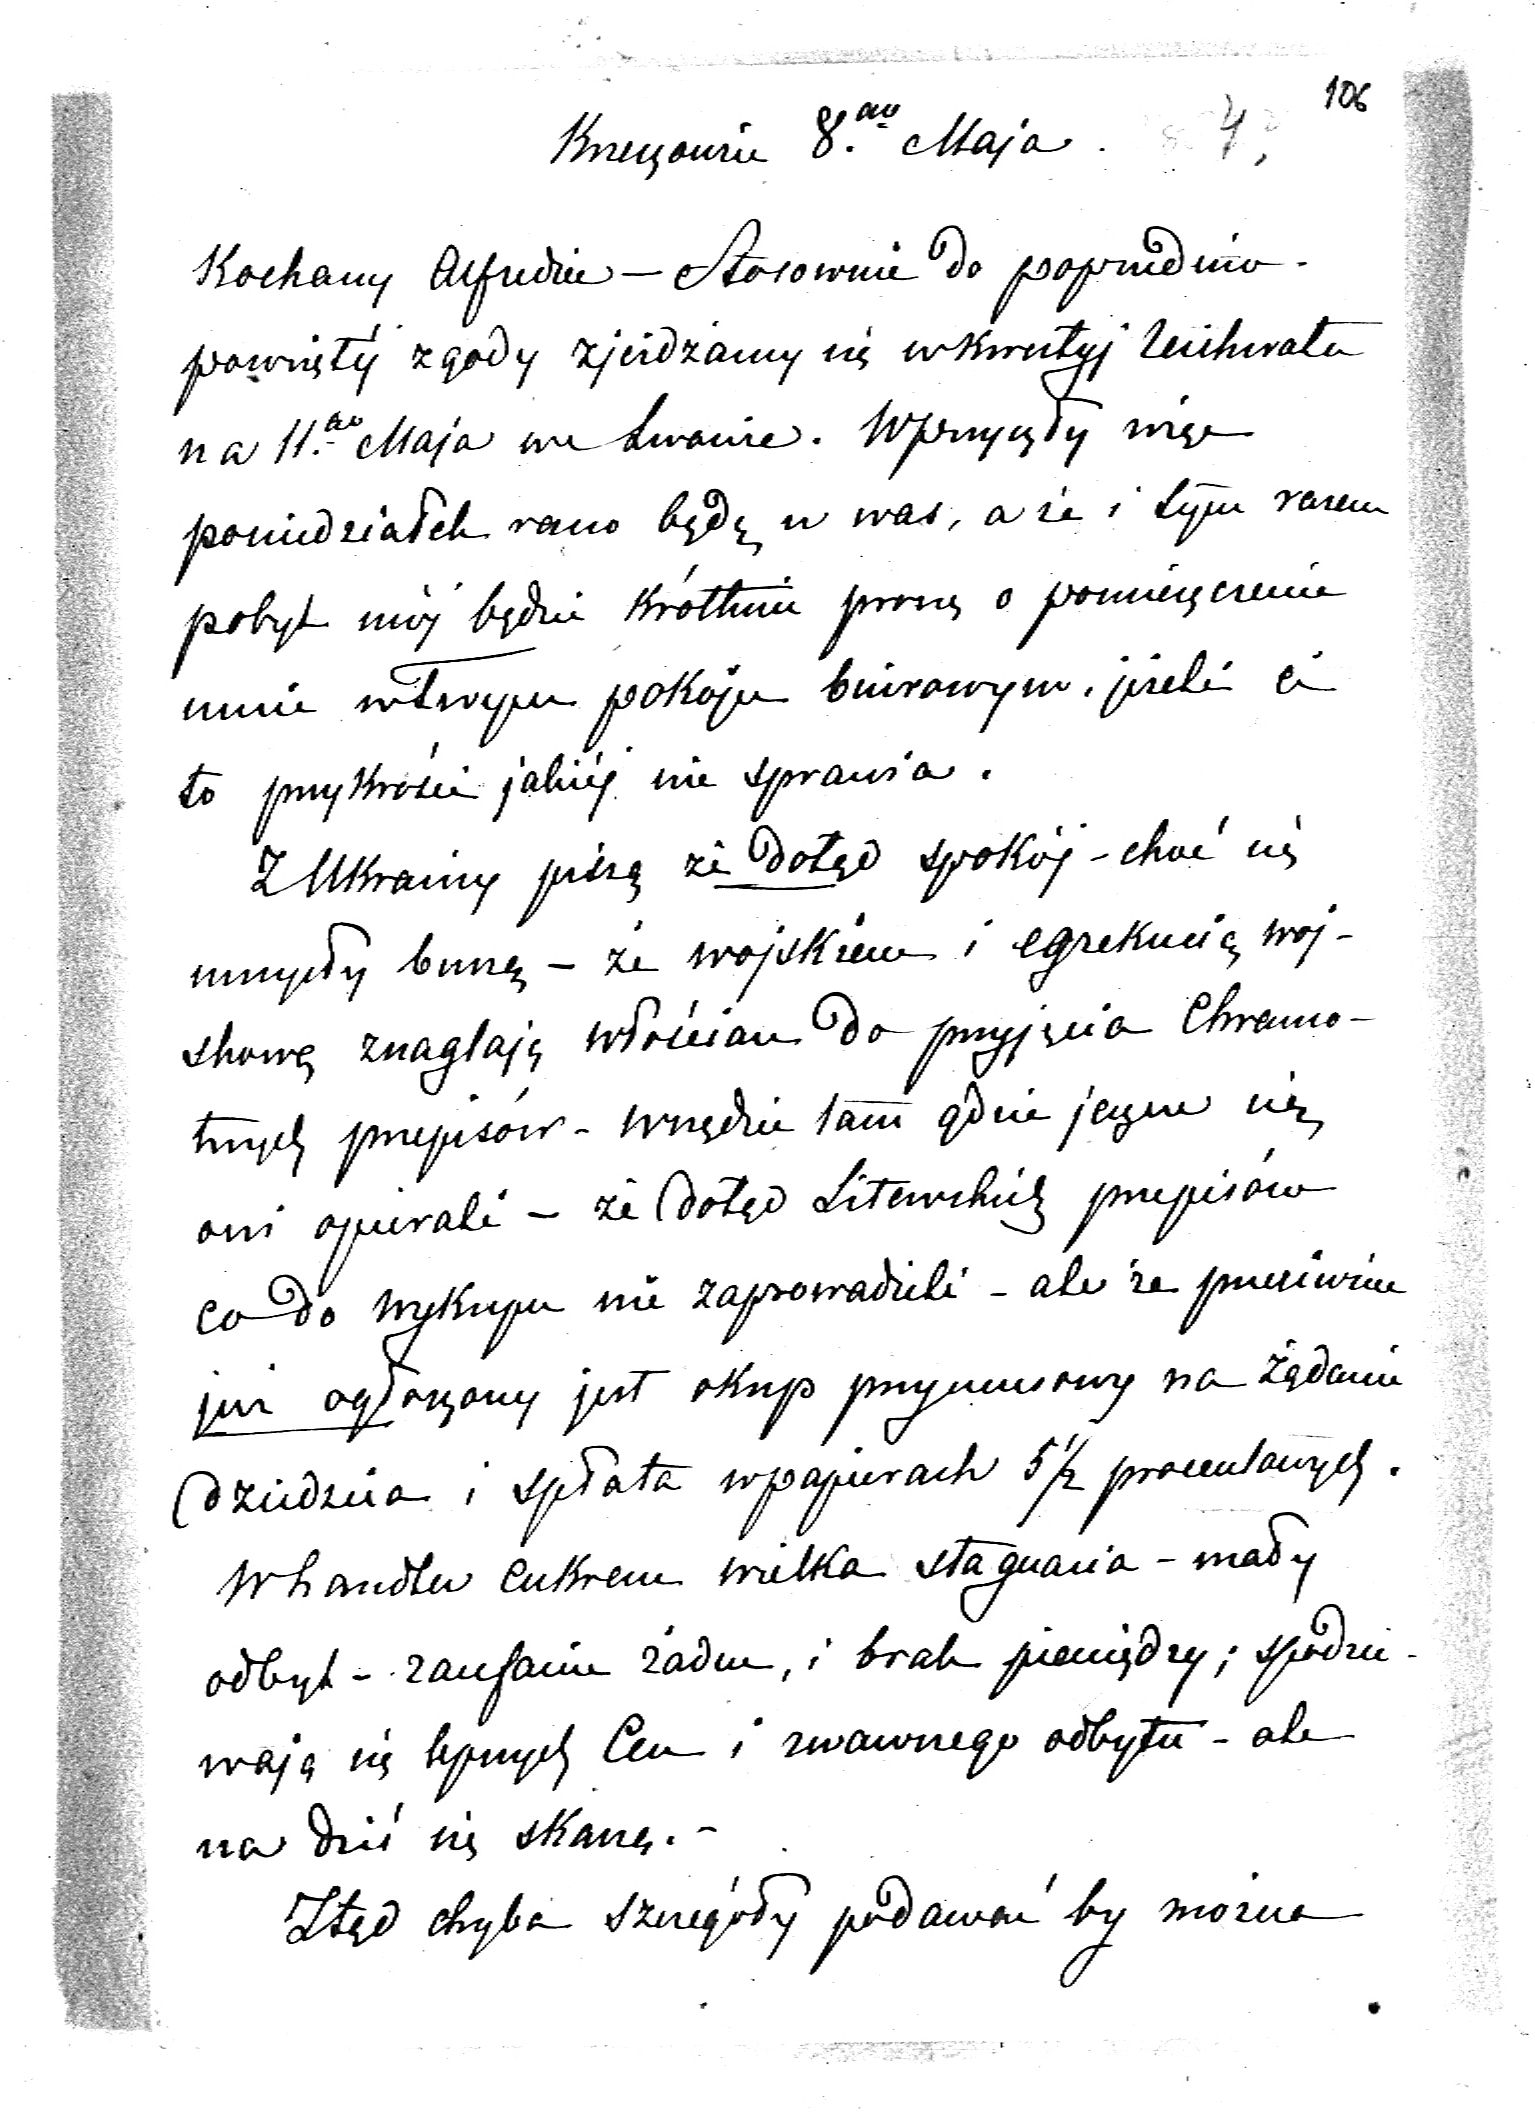 106
Krzeszowice 8.go Maja 4,
Kochany Alfredzie – Stosownie do poprzednio
powziętéj zgody zjeżdżamy się w kwestyj Reichrata
na 11.go Maja we Lwowie. W przyszły więc
poniedziałek rano będę u was, a że i tym razem
pobyt mój będzie krótkim proszę o pomieszczenie
mnie w twym pokoju biurowym, jeżeli ci
to przykrości jakiéj nie sprawia.
Z Ukrainy piszą że dotąd spokój – choć się
umysły burzą – że wojskiem i egzekucią woj-
skową znaglają włościan do przyjęcia Chramo-
tnych przepisów – wszędzie tam gdzie jeszcze się
oni opierali – że dotąd Litewskich przepisów
co do wykupu nie zaprowadzili – ale że przeciwnie
już ogłoszony jest okup przymusowy na żądanie
dziedzica i spłata w papierach 5 1/2 procentowych.
W handlu cukrem wielka stagnacia – mały
odbyt – zaufanie żadne, i brak pieniędzy; spodzie-
wają się lepszych Cen i zwawszego odbytu – ale
na dziś się skarżą. –
Ztąd chyba szczegóły podawać by można